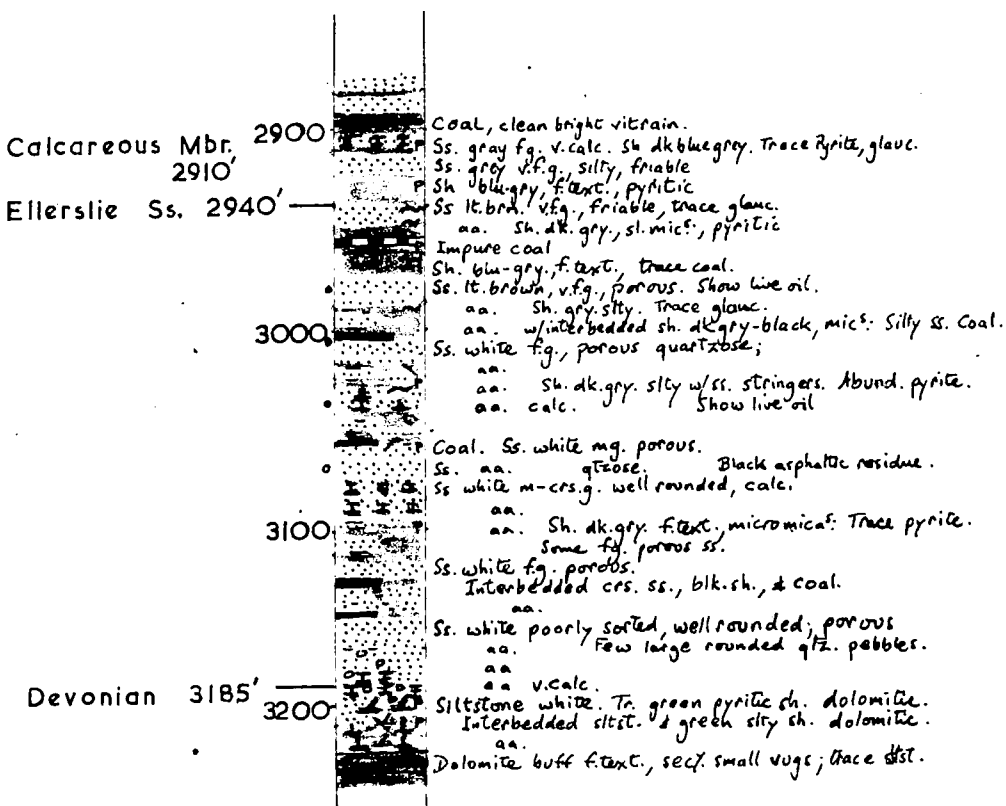 2900 Coal, clean bright vitrain.
Calcareous Mbr. Ss. gray fg. v.calc. Sh dk blue grey. Trace Pyrite, glauc.
2910' Ss. grey v.f.g., silty, friable
Sh blu-gry, f.text., pyritic
Ellerslie Ss. 2940' Ss lt.brn. v.f.g., friable, trace glauc.
aa. Sh. dk. gry., sl. mics., pyritic
Impure coal
Sh. blu-gry., f.text., trace coal.
Ss. lt. brown, v.f.g., porous. Show live oil.
aa. Sh. gry. slty. Trace glauc.
3000 aa. w/interbedded sh. dk gry-black, mics: Silty ss. Coal.
Ss. white f.g., porous quartzose;
aa.
aa. Sh. dk. gry. slty w/ss. stringers. Abund. pyrite.
aa. calc. Show live oil
Coal. Ss. white mg. porous.
Ss. aa. qtzose. Black asphaltic residue.
Ss white m-crs.g. well rounded, calc.
aa.
3100 aa. Sh. dk. gry. f.text., micromicas: Trace pyrite.
Some fg. porous ss.
Ss. white f.g. porous.
Interbedded crs. ss., blk. sh., & coal.
aa.
Ss. white poorly sorted, well rounded; porous
aa. Few large rounded qtz. pebbles.
aa
Devonian 3185' aa v.calc.
3200 Siltstone white. Tr. green pyritic sh. dolomitic.
Interbedded sltst. & green slty sh. dolomitic.
aa.
Dolomite buff f.text., sec. small vugs; trace